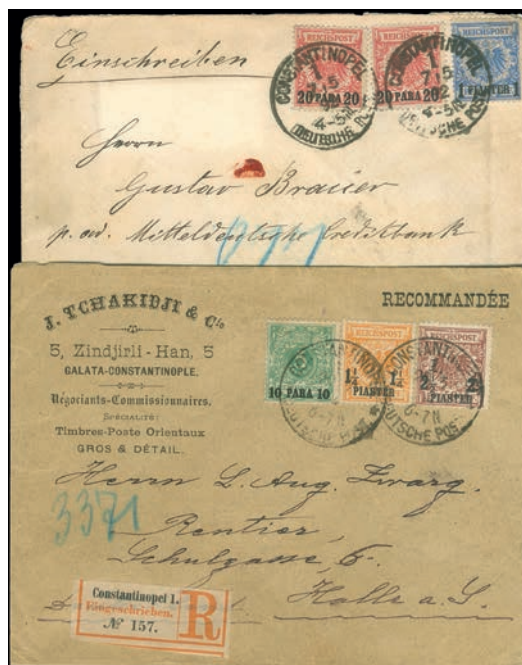 Einschreiben
REICHSPOST REICHSPOST REICHSPOST
20 PARA 20 20 PARA 20 1 PIASTER 1
CONSTANTINOPEL 1 7 5 4-5N DEUTSCHE POST
CONSTANTINOPEL 1 7 5 92 4-5N DEUTSCHE POST
Herrn
Gustav Brauer
p. ad. Mitteldeutsche Creditbank
J. TCHAKIDJI & Cie
5, Zindjirli-Han, 5
GALATA-CONSTANTINOPLE.
Négociants-Commissionnaires.
SPÉCIALITÉ:
Timbres-Poste Orientaux
GROS & DÉTAIL.
RECOMMANDÉE
REICHSPOST REICHSPOST
10 PARA 10 1¼ PIASTER 1¼ 2½ PIASTER 2½
CONSTANTINOPEL 1 6-7N DEUTSCHE POST
CONSTANTINOPEL 1 6-7N DEUTSCHE POST
Herrn L. Aug. Zwarg.
3371
Rentier,
Schulgasse, 6.
Halle a. S.
Constantinopel 1.
Eingeschrieben.
№ 157.
R